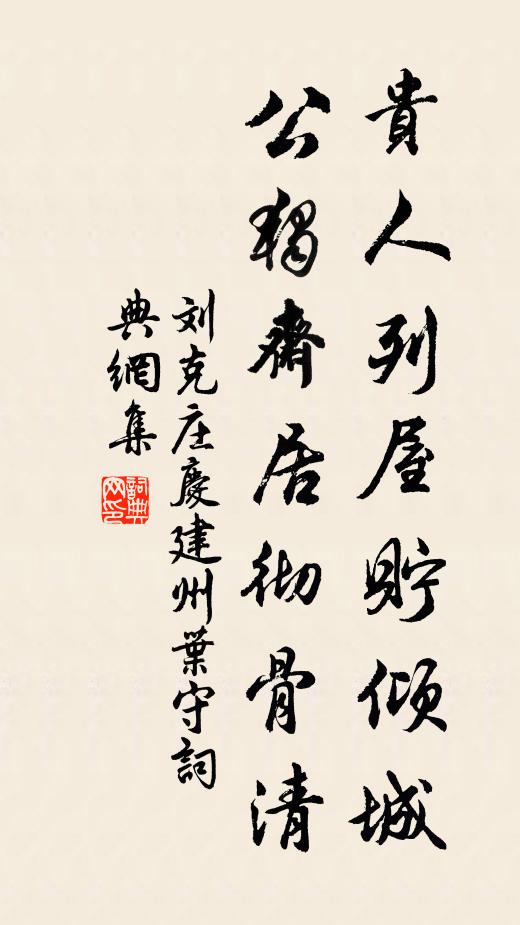 貴人列屋貯傾城
公獨齋居彻骨清
刘克庄慶建州葉守詞
典網集
詞典网印